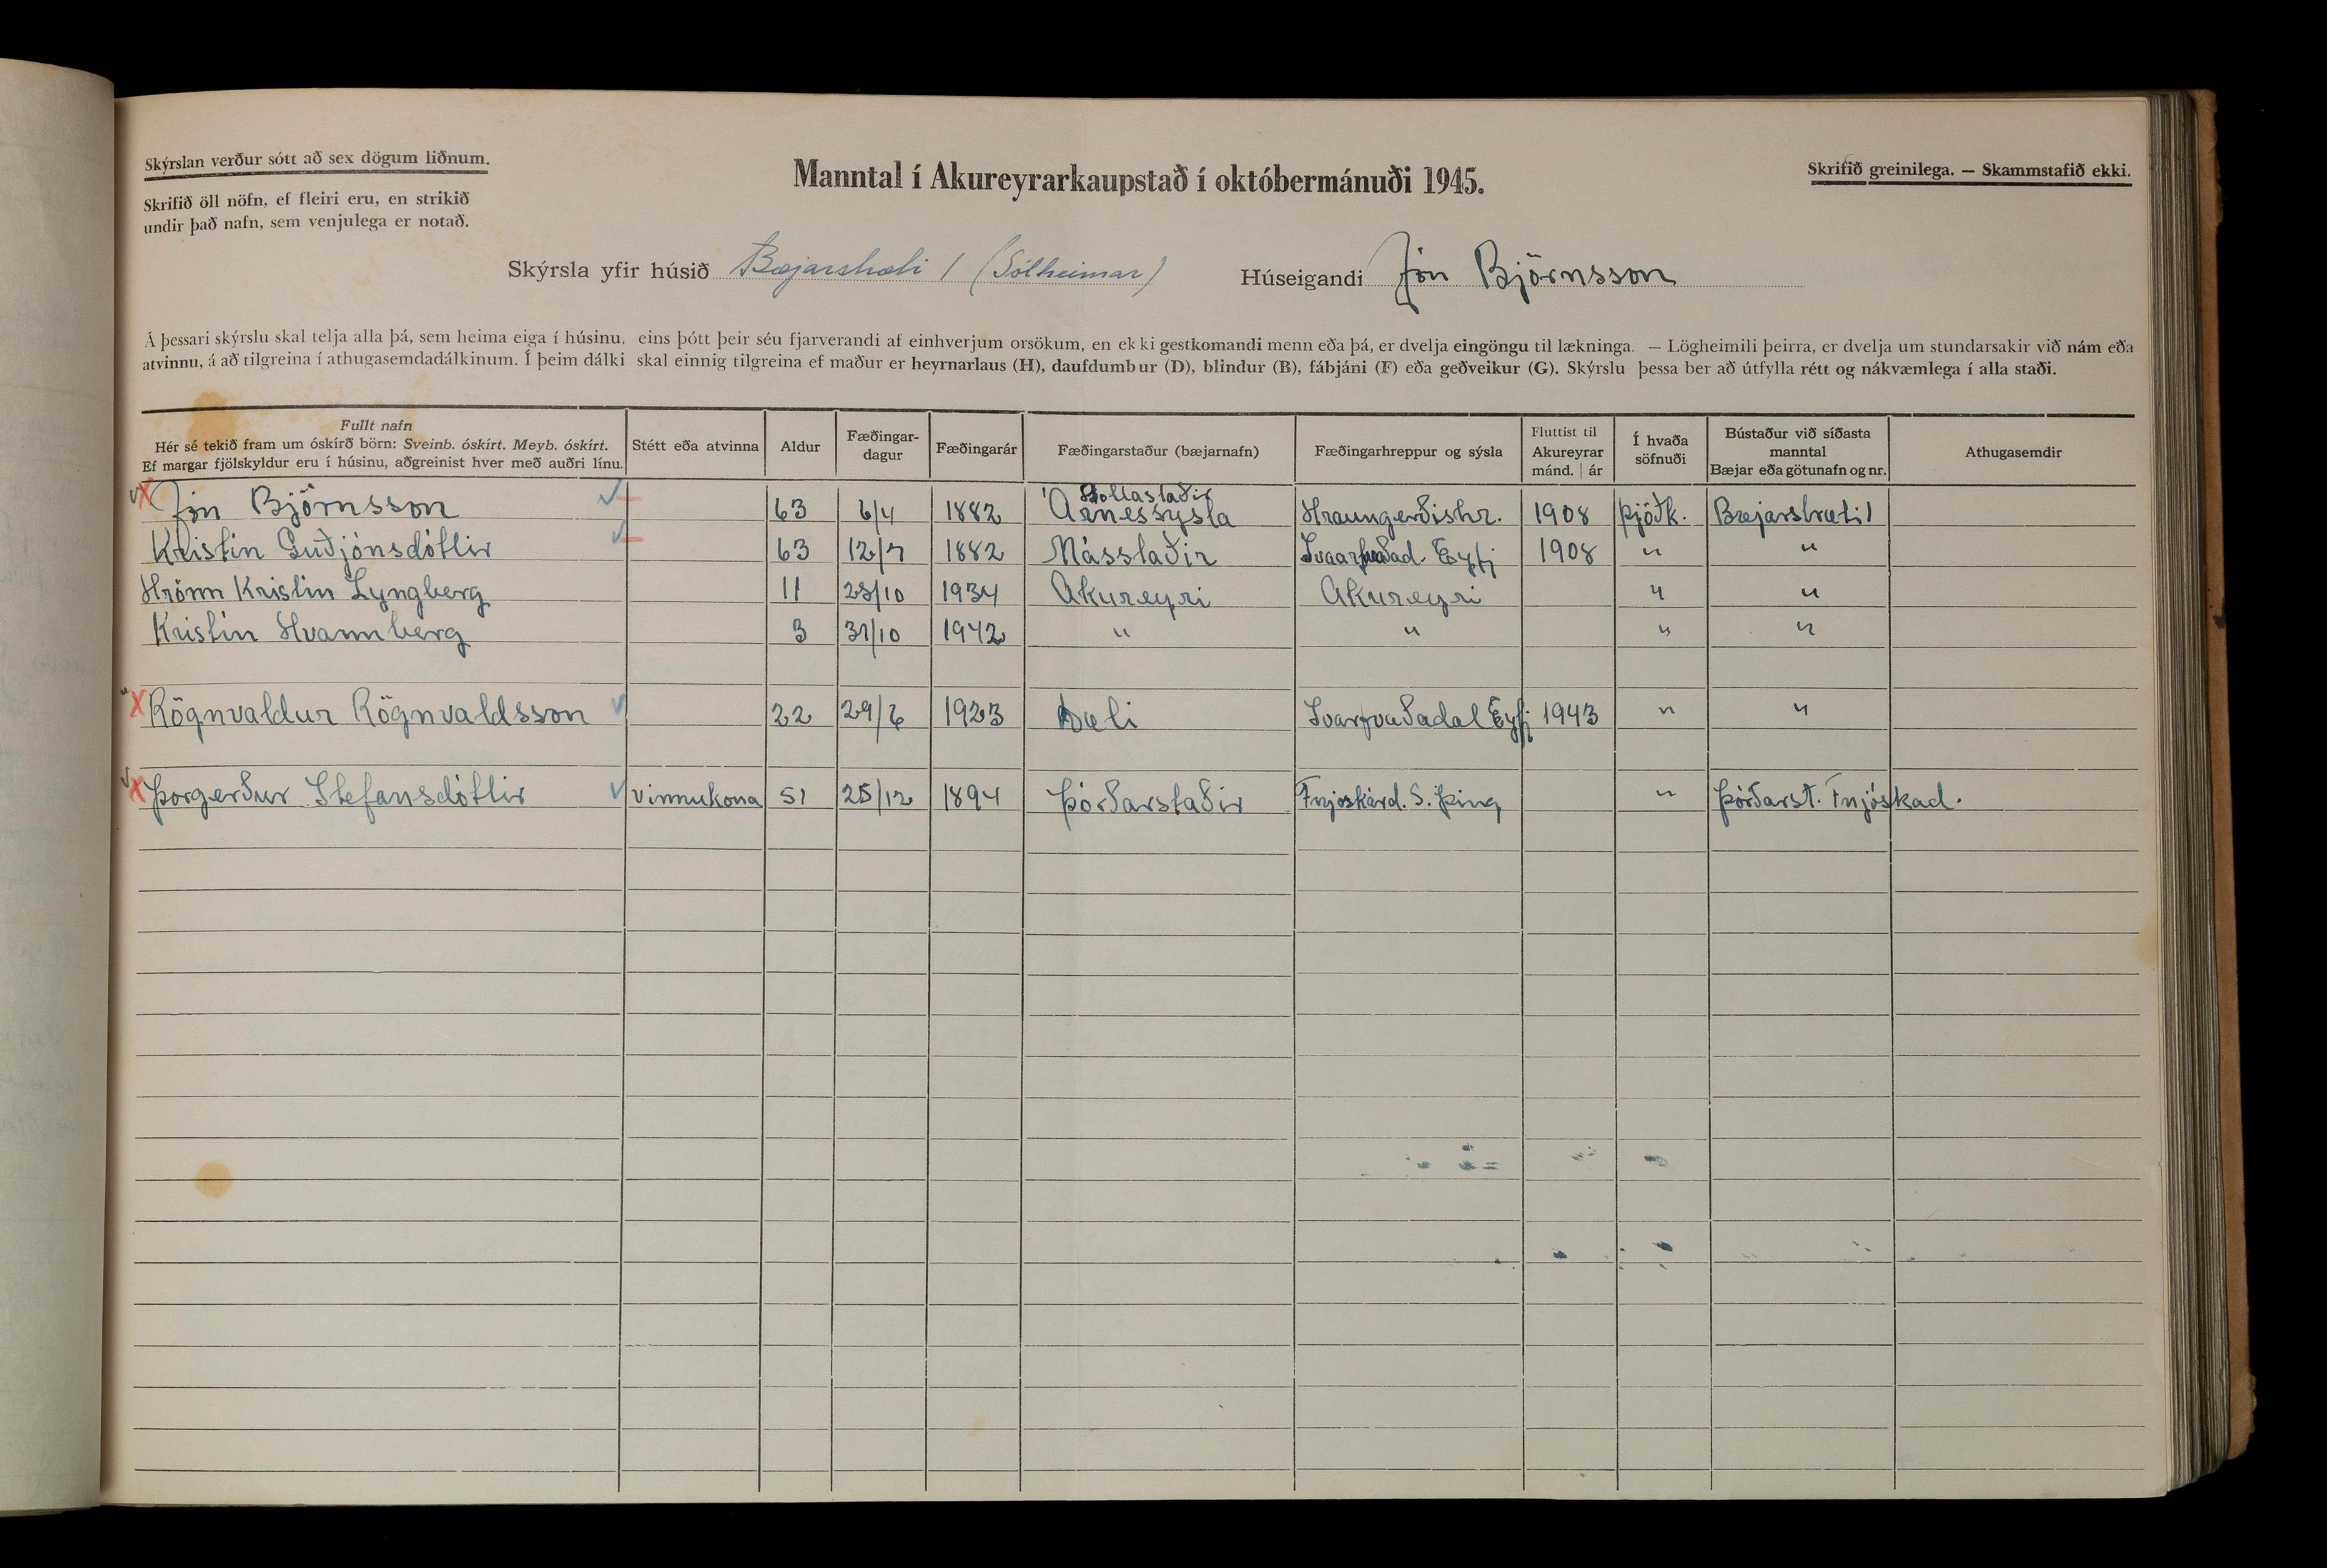 Skýrslan verður sótt að sex dögum liðnum.
Skrifið öll nöfn, ef fleiri eru, en strikið
undir það nafn, sem venjulega er notað.
Manntal í Akureyrarkaupstað í októbermánuði 1945.
Skrifið greinilega. — Skammstafið ekki.
Skýrsla yfir húsið Bæjarstræti 1 (Sólheimar) Húseigandi Jón Björnsson
Á þessari skýrslu skal telja alla þá, sem heima eiga í húsinu, eins þótt þeir séu fjarverandi af einhverjum orsökum, en ekki gestkomandi menn eða þá, er dvelja eingöngu til lækninga. — Lögheimili þeirra, er dvelja um stundarsakir við nám eða
atvinnu, á að tilgreina í athugasemdadálkinum. Í þeim dálki skal einnig tilgreina ef maður er heyrnarlaus (H), daufdumbur (D), blindur (B), fábjáni (F) eða geðveikur (G). Skýrslu þessa ber að útfylla rétt og nákvæmlega í alla staði.
Fullt nafn
Hér sé tekið fram um óskírð börn: Sveinb. óskírt. Meyb. óskírt.
Ef margar fjölskyldur eru í húsinu, aðgreinist hver með auðri línu.
Stétt eða atvinna
Aldur
Fæðingar-
dagur
Fæðingarár
Fæðingarstaður (bæjarnafn)
Fæðingarhreppur og sýsla
Fluttist til
Akureyrar
mánd. | ár
Í hvaða
söfnuði
Bústaður við síðasta
manntal
Bæjar eða götunafn og nr.
Athugasemdir
Jón Björnsson 63 6/4 1882 Árnessýsla Hraungerðishr. 1908 Þjóðk. Bæjarstræti 1
Kristín Guðjónsdóttir 63 12/7 1882 Másstaðir Svarfaðad. Eyfj 1908 " "
Hrönn Kristín Lyngberg 11 23/10 1934 Akureyri Akureyri " "
Kristín Hvannberg 3 31/10 1942 " " " "
Rögnvaldur Rögnvaldsson 22 29/6 1923 Dæli Svarfvaðadal Eyfj 1943 " "
Þorgerður Stefansdóttir vinnukona 51 25/12 1894 Þórðarstaðir Fnjoskárd. S. Þing " Þórðarst. Fnjóskad.